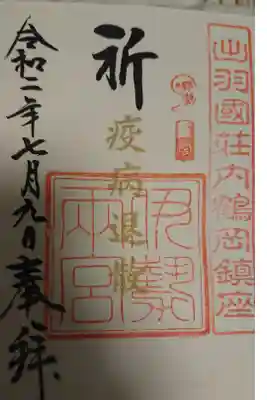 出羽國荘内鶴岡鎮座
祈
疫病退散
伊勢両宮
令和二年七月九日奉拜